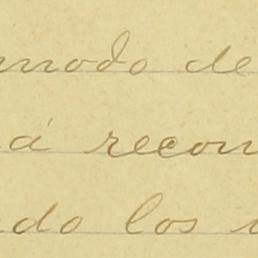 modo de
á recon
do los